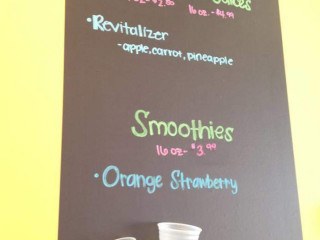 Juices
16 oz. - $4.99
• Revitalizer
- apple, carrot, pineapple
Smoothies
16 oz - $3.99
• Orange Strawberry